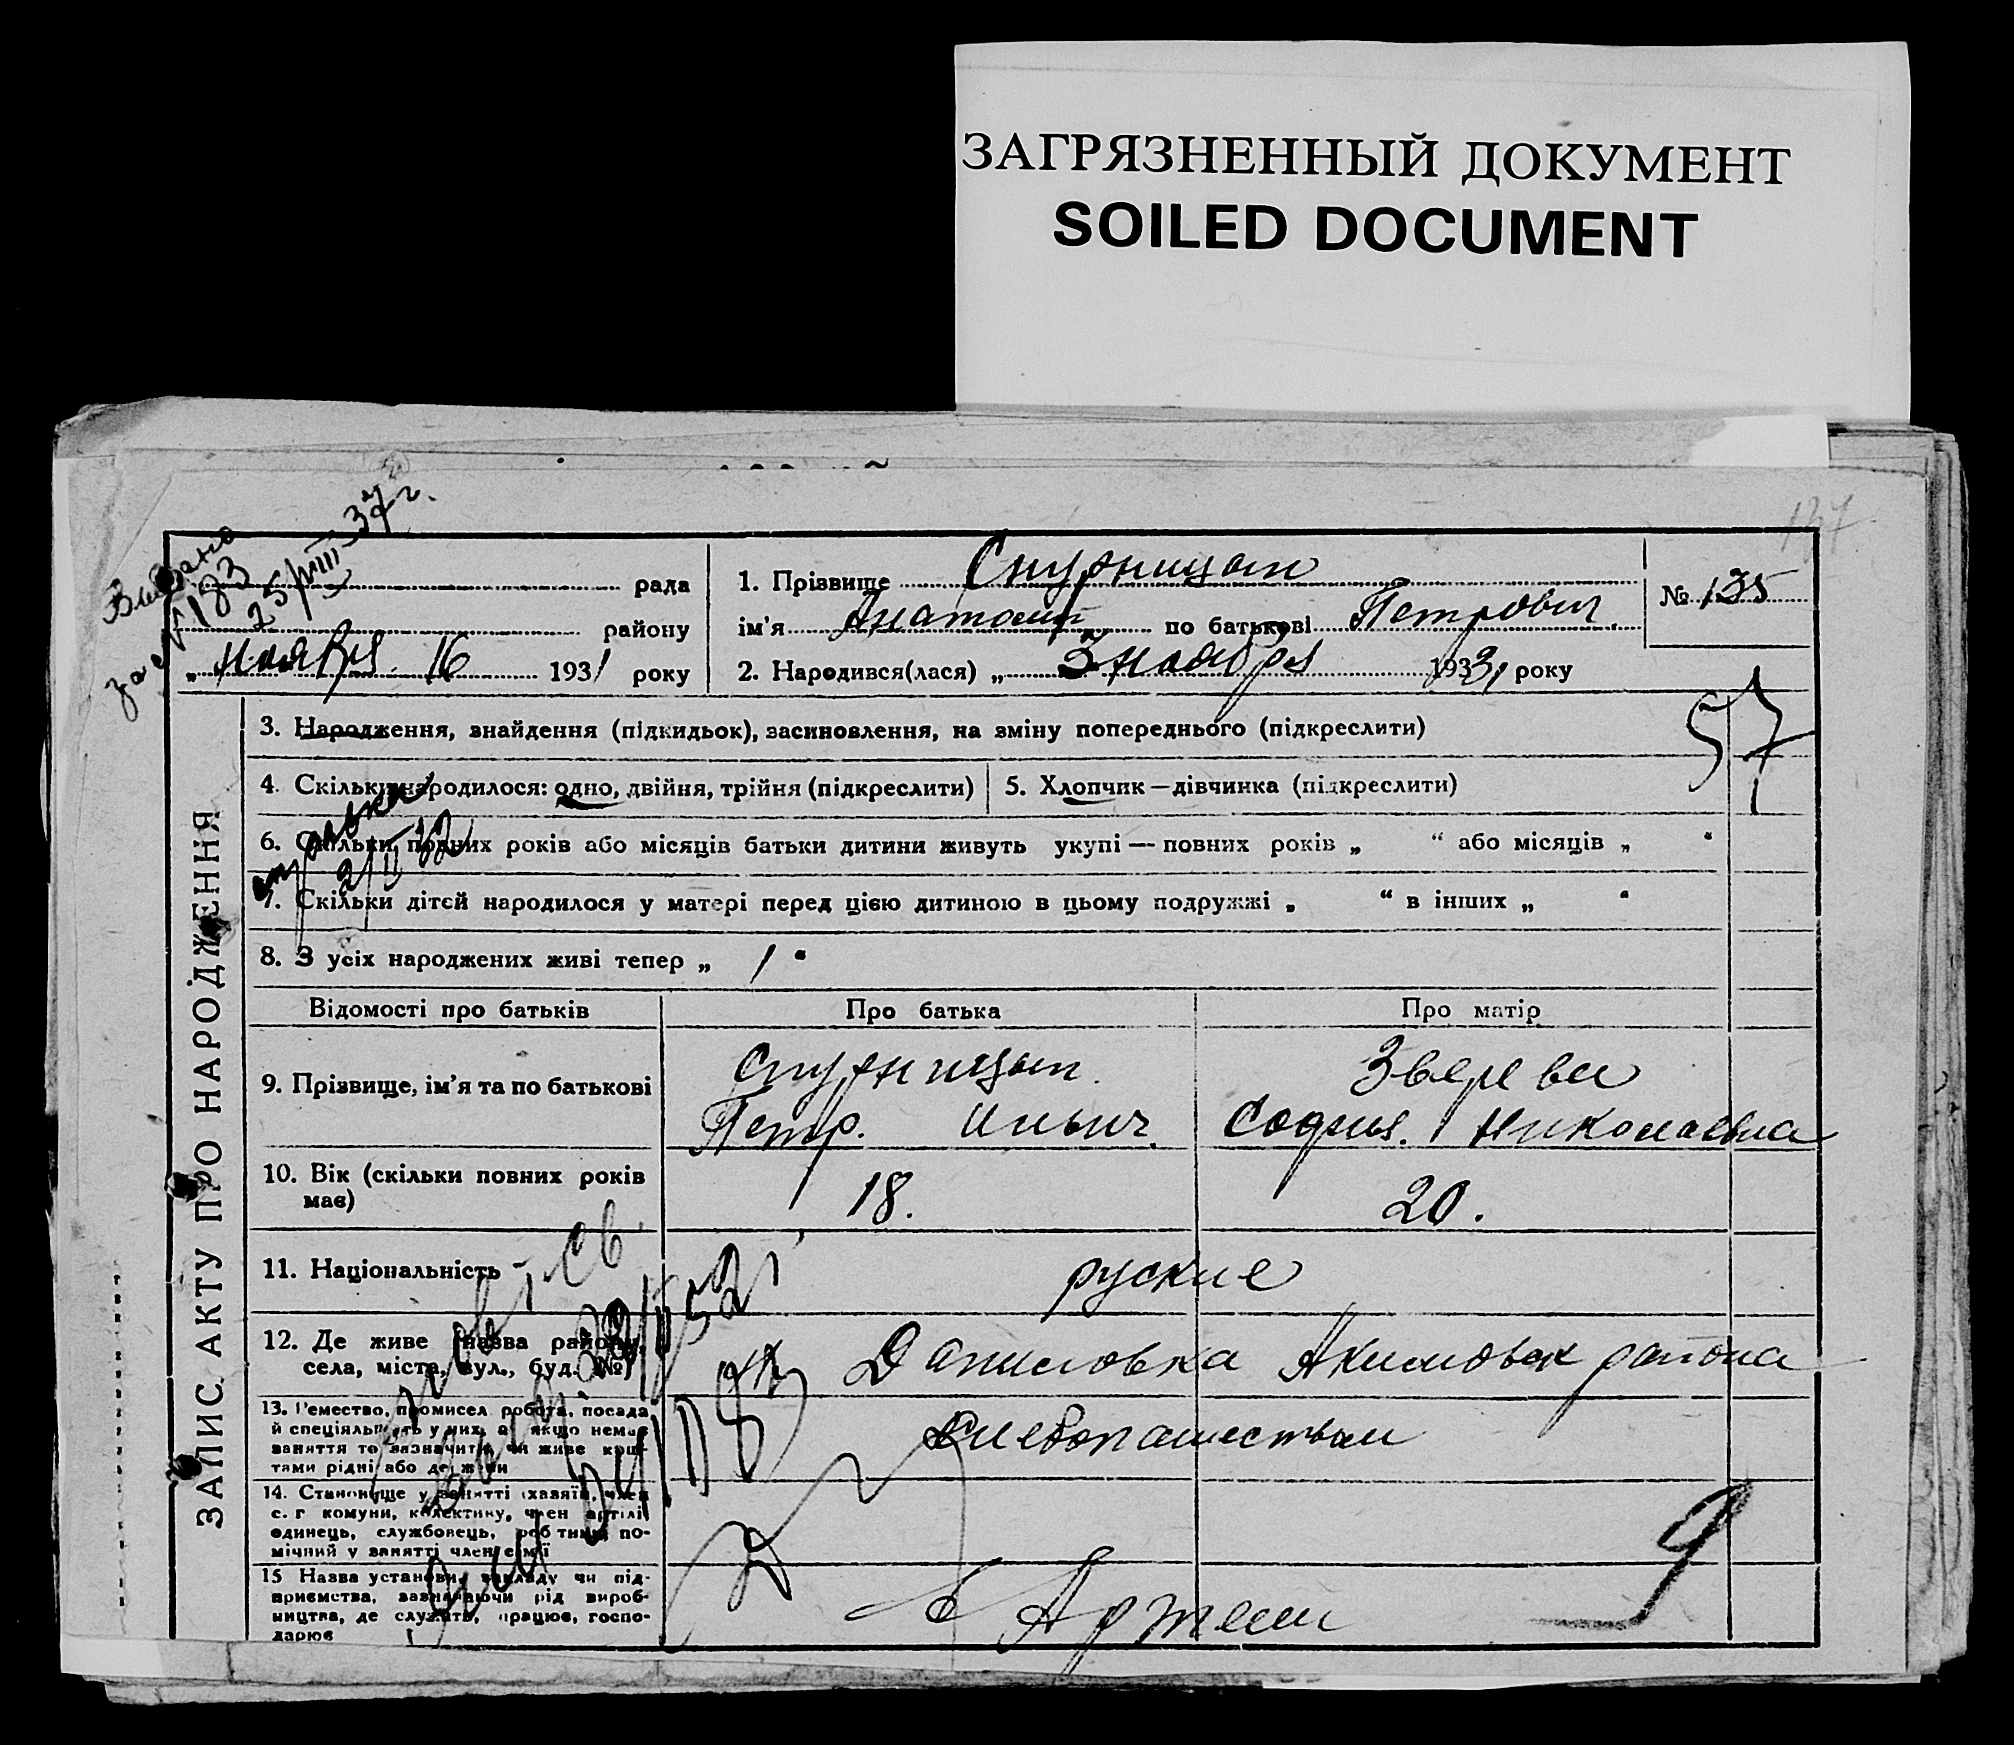 ЗАГРЯЗНЕННЫЙ ДОКУМЕНТ
SOILED DOCUMENT
137
за № 183
25/VIII-37 г.
рада
району
„ ноября 16 1931 року
1. Прізвище
ім'я Анатолий по батькові Петрович
2. Народився(лася) „ 3 ноября 1931 року
№ 135
57
ЗАПИС АКТУ ПРО НАРОДЖЕННЯ
3. Народження, знайдення (підкидьок), засиновлення, на зміну попереднього (підкреслити)
4. Скільки народилося: одно, двійня, трійня (підкреслити)
5. Хлопчик — дівчинка (підкреслити)
справка
2/II 32
6. Скільки повних років або місяців батьки дитини живуть укупі — повних років „ “ або місяців „ “
7. Скільки дітей народилося у матері перед цією дитиною в цьому подружжі „ “ в інших „ “
8. З усіх народжених живі тепер „ 1 “
Відомості про батьків
Про батька
Про матір
9. Прізвище, ім'я та по батькові
Петр. Ильич.
Зверева
София. Николаевна
10. Вік (скільки повних років має)
18.
20.
11. Національність
руские
12. Де живе (назва району,
села, міста, вул., буд. №)
Даниловка Акимовск района
13. Ремество, промисел, робота, посада
й спеціяльність у них, а якщо немає
заняття то зазначити, чи живе кош-
тами рідні або держави
хлебопашеством
14. Становище у занятті (хазяїн, член
с. г комуни, колективу, член артілі,
одинець, службовець, робітник, по-
мічний у занятті член сем'ї
15 Назва установи, закладу чи під-
приємства, зазначаючи рід вироб-
ництва, де служить, працює, госпо-
дарює
в Артели
9